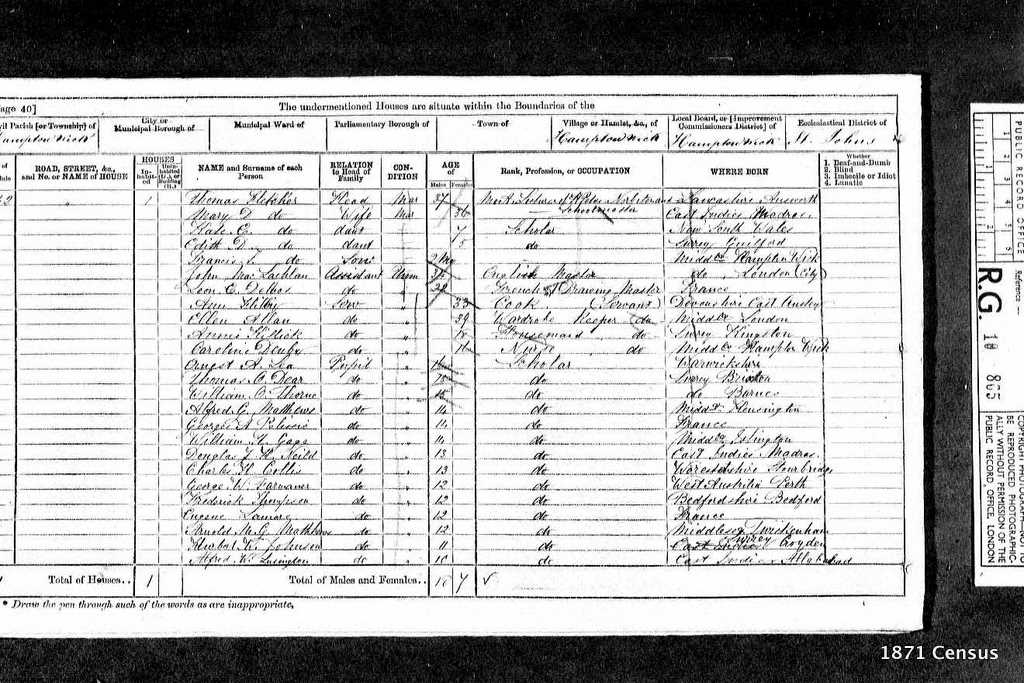 age 40]
The undermentioned Houses are situate within the Boundaries of the
vil Parish [or Township] of
City or Municipal Borough of
Municipal Ward of
Parliamentary Borough of
Town of
Village or Hamlet, &c., of
Local Board, or [Improvement Commissioners District] of
Ecclesiastical District of
Hampton Wick
Hampton Wick
Hampton Wick
St. Johns
ROAD, STREET, &c., and No. or NAME of HOUSE
HOUSES
In-habit-ed
Unin-habited (U.), or Building (B.)
NAME and Surname of each Person
RELATION to Head of Family
CON-DITION
AGE of
Males
Females
Rank, Profession, or OCCUPATION
WHERE BORN
Whether
1. Deaf-and-Dumb
2. Blind
3. Imbecile or Idiot
4. Lunatic
1 Thomas Fletcher Head Mar 37 Lancashire
Mary D do Wife Mar 36 Schoolmaster East Indies Madras
Kate E. do daur 7 Scholar New South Wales
Edith D do daur 5 do Surrey Guilford
Francis do Son 2 Mo Middx Hampton Wick
John Mac Lachlan Assistant Unm English Master do London (City)
Leon C. Delbos do 22 French & Drawing Master France
Ann Serv 33 Cook (Servant)
Ellen Allan do 39 Wardrobe Keeper do Middx London
Annie do Housemaid do Surrey Kingston
Caroline do 16 Nurse do Middx Hampton Wick
Ernest A. Pupil 16 Scholar Warwickshire
Thomas C. Dear do 15 do Surrey Brixton
William C. Thorne do 15 do do Barnes
Alfred G. Mathews do 14 do Middx Kensington
Georges A do 14 do France
William H. Gage do 14 do Middx Islington
Douglas J. H. Neild do 13 do East Indies Madras
Charles H. Collis do 13 do Worcestershire Stourbridge
George W. do 12 do West Australia Perth
Frederick do 12 do Bedfordshire Bedford
Eugene do 12 do France
Arnold M. G. Mathews do 12 do Middlesex Twickenham
K. Johnson do 11 do Surrey Croydon
Alfred W. Lusington do 10 do East Indies
Total of Houses.. 1
Total of Males and Females.. 18 7
* Draw the pen through such of the words as are inappropriate.
PUBLIC RECORD OFFICE
Reference:—
R.G. 10
865
COPYRIGHT PHOTOGRAPH—NOT TO BE REPRODUCED PHOTOGRAPHIC-ALLY WITHOUT PERMISSION OF THE PUBLIC RECORD OFFICE, LONDON
1871 Census